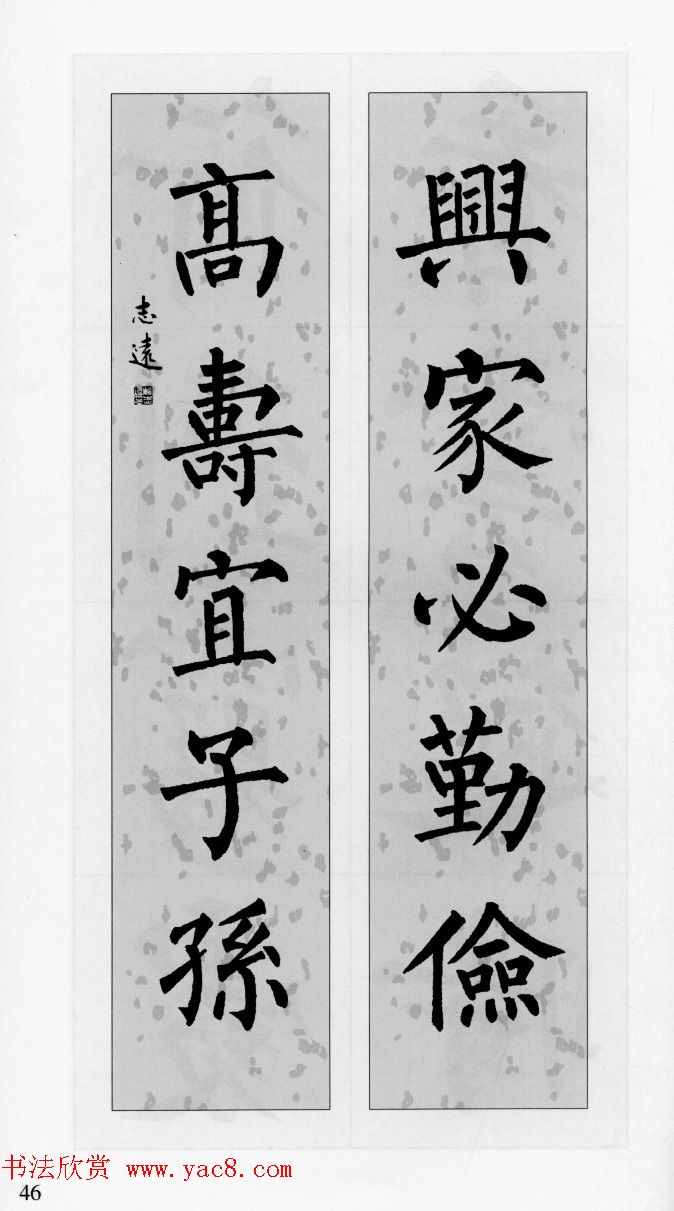 興家必勤儉
高壽宜子孫
志遠
书法欣赏 www.yac8.com
46